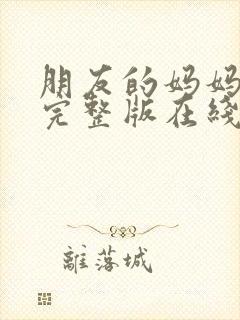 朋友的妈妈
完整版在线
離落城